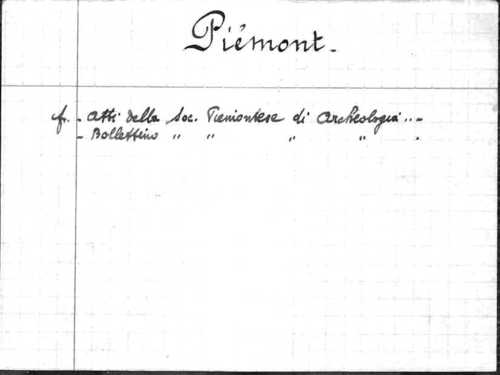 Piémont.
f. - Atti della Soc. Piemontese di Archeologia ..-
- Bollettino " " " " .